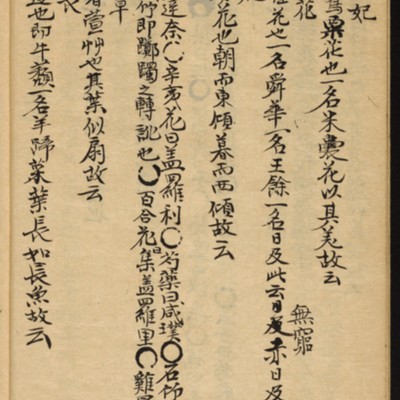 妃
粟花也一名米囊花以其美故云
花
花也一名舜華一名王餘一名日及此云日及赤日及
無窮
花也朝而東傾暮而西傾故云
達奈〇辛亥花曰盖羅利〇芍藥曰咸璞〇石
即躑躅之轉訛也〇百合花曰集盖羅里〇雞
草
萱艸也其葉似扇故云
長
也即牛蘈一名羊蹄菜葉長如長魚故云